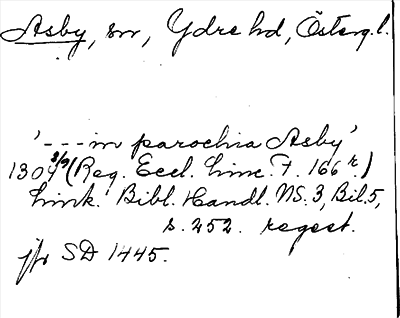 Asby, sn, Ydre hd, Österg. l.
'---in parochia Asby'
1304 3/9 (Reg. Eccl. Linc. F. 166 r.)
Link. Bibl. Handl. NS. 3, Bil. 5,
s. 252. regest.
jfr SD 1445.